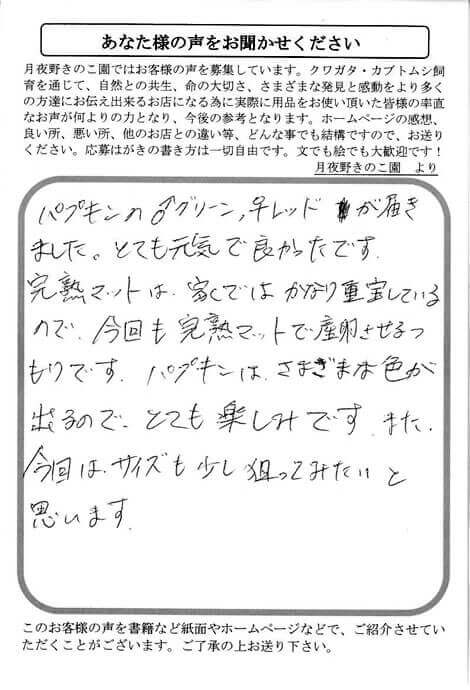 あなた様の声をお聞かせください
月夜野きのこ園ではお客様の声を募集しています。クワガタ・カブトムシ飼
育を通じて、自然との共生、命の大切さ、さまざまな発見と感動をより多く
の方達にお伝え出来るお店になる為に実際に用品をお使い頂いた皆様の率直
なお声が何よりの力となり、今後の参考となります。ホームページの感想、
良い所、悪い所、他のお店との違い等、どんな事でも結構ですので、お送り
ください。応募はがきの書き方は一切自由です。文でも絵でも大歓迎です！
月夜野きのこ園　より
パプキンの♂グリーン,♀レッド が届き
ました。とても元気で良かったです.
完熟マットは. 家くでは かなり重宝している
ので. 今回も 完熟マットで産卵させるつ
もりです. パプキンは. さまざまな色が
出るので. とても楽しみです. また.
今回は. サイズも少し狙ってみたいと
思います.
このお客様の声を書籍など紙面やホームページなどで、ご紹介させてい
ただくことがございます。ご了承の上お送り下さい。